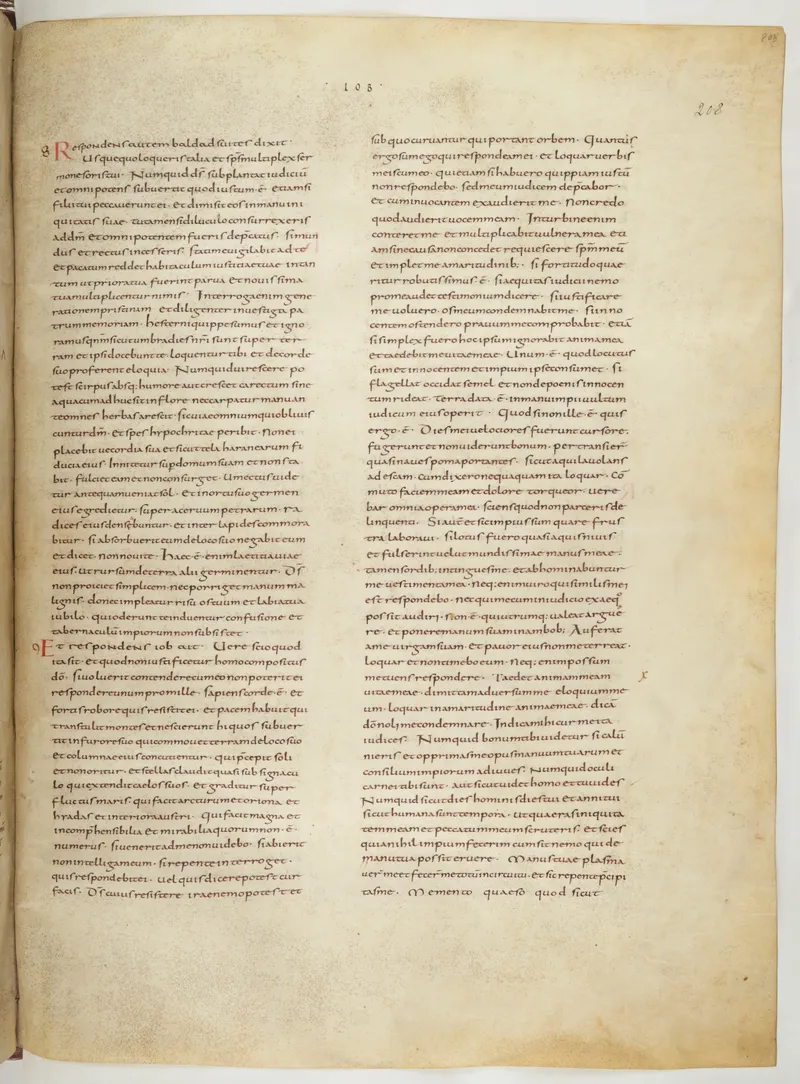 · IOB ·
208
Respondens autem baldad suites dixit ·
Usquequo loqueris talia et sps multiplex ser
mones oris tui · Numquid ds subplantat iudiciū
et omnipotens subuertit quod iustum · ē · etiam si
filii tui peccauerunt ei · et dimisit eos in manu ini
quitatis suae · tu tamen si diluculo consurrexeris
ad dm̄ et omnipotentem fueris dep̄catus · si mun
dus et rectus incesseris · statim euigilabit ad te
et pacatum reddet habitaculum iustitiae tuae in tan
tum ut priora tua fuerint parua et nouissima
tua multiplicentur nimis · Interroga enim gene
rationem pristinam et diligenter inuestiga pa
trum memoriam · hesterni quippe sumus et igno
ramus qnm̄ sicut umbra dies nr̄i sunt super ter
ram et ipsi docebunt te · loquentur tibi et de corde
suo proferent eloquia · Numquid uirescere po
test scirpus absq; humore aut crescet carectum sine
aqua cum adhuc sit in flore nec carpatur manu an
te omnes herbas arescit · sic uiae omnium qui obliuis
cuntur dm̄ · et spes hypochritae peribit · Non ei
placebit uecordia sua et sicut tela haranearum fi
ducia eius Innitetur sup domum suam et non sta
bit · fulciet eam et non consurget · Umectus uide
tur antequam ueniat sol · et in ortu suo germen
eius egredietur · super aceruum petrarum · ra
dices eius densabuntur · et inter lapides commora
bitur · si absorbuerit eum de loco suo negabit eum
et dicet · non noui te · Haec · ē · enim laetitia uiae
eius · ut rursum de terra alii germinentur · Ds̄
non proiciet simplicem · nec porriget manum ma
lignis · donec impleatur risu os tuum et labia tua
iubilo · qui oderunt te induentur confusione · et
tabernaculū impiorum non subsistet ·
Et respondens iob ait · Uere scio quod
ita sit · et quod non iustificetur homo compositus
dō · si uoluerit contendere cum eo non poterit ei
respondere unum pro mille · sapiens corde · ē · et
fortis robore quis restitit ei · et pacem habuit qui
transtulit montes et nescierunt hi quos subuer
tit in furore suo qui commouet terram de loco suo
et columnae eius concutientur · qui p̄cepit soli
et non oritur · et stellas claudit quasi sub signacu
lo qui extendit caelos solus · et graditur super
fluctus maris · qui facit arcturum et oriona et
hyadas et interiora austri · Qui facit magna et
incomp̄hensibilia et mirabilia quorum non · ē ·
numerus · si uenerit ad me non uidebo · si abierit
non intellegam eum · si repente interroget ·
quis respondebit ei · uel quis dicere potest cur
facis · Ds̄ cuius resistere irae nemo potest et
sub quo curuantur qui portant orbem · Quantus
ergo sum ego qui respondeam ei · et loquar uerbis
meis cum eo · qui etiam si habuero quippiam iustū
non respondebo · sed meum iudicem dep̄cabor ·
et cum inuocantem exaudierit me · Non credo
quod audierit uocem meam · In turbine enim
conteret me et multiplicabit uulnera mea etiā
am sine causa non concedet requiescere spm̄ meū
et implet me amaritudinib; · si fortitudo quae
ritur robustissimus · ē · si aequitas iudicii nemo
pro me audet testimonium dicere · si iustificare
me uoluero · os meum condemnabit me · si inno
centem ostendero prauum me comprobabit · etiā
si simplex fuero hoc ipsum ignorabit anima mea
et taedebit me uitae meae · Unum · ē · quod locutus
sum et innocentem et impium ipse consumet · si
flagellat occidat semel et non de poenis innocen
tum rideat · terra data · ē · in manu impii uultum
iudicum eius operit · Quod si non ille · ē · quis
ergo · ē · Dies mei uelociores fuerunt cursore ·
fugerunt et non uiderunt bonum · pertransier̄
quasi naues poma portantes · sicut aquila uolans
ad escam · cum dixero nequaquam ita loquar · Cō
muto faciem meam et dolore torqueor · uere
bar omnia opera mea · sciens quod non parceris de
linquenti · Si aut̄ et sic impius sum quare frus
tra laboraui · si lotus fuero quasi aquis niuis
et fulserint uelut mundissimae manus meae ·
tamen sordib; intingues me · et abhominabuntur
me uestimenta mea · neq; enim uiro qui similis mei
est respondebo · nec qui mecum in iudicio ex aequo
possit audiri · Non · ē · qui utrumq; ualeat argue
re · et ponere manum suam in ambob; Auferat
a me uirgam suam · et pauor eius non me terreat ·
loquar et non timebo eum · Neq; enim possum
metuens respondere · Taedet animam meam
uitae meae · dimittam aduersum me eloquium me
um · loquar in amaritudine animae meae · dicā
dō noli me condemnare · Indica mihi cur me ita
iudices · Numquid bonum tibi uidetur si calū
nieris et opprimas me opus manuum tuarum et
consilium impiorum adiuues · Numquid oculi
carnei tibi sunt · aut sicut uidet homo et tu uides ·
Numquid sicut dies hominis dies tui et anni tui
sicut humana sunt tempora · ut quaeras iniquita
tem meam et peccatum meum scruteris · et scies
quia nihil impium fecerim cum sit nemo qui de
manu tua possit eruere · Manus tuae plasma
uer̄ me et fecer̄ me totū in circuitu · et sic repente p̄cipi
tas me · Memento quaeso quod sicut